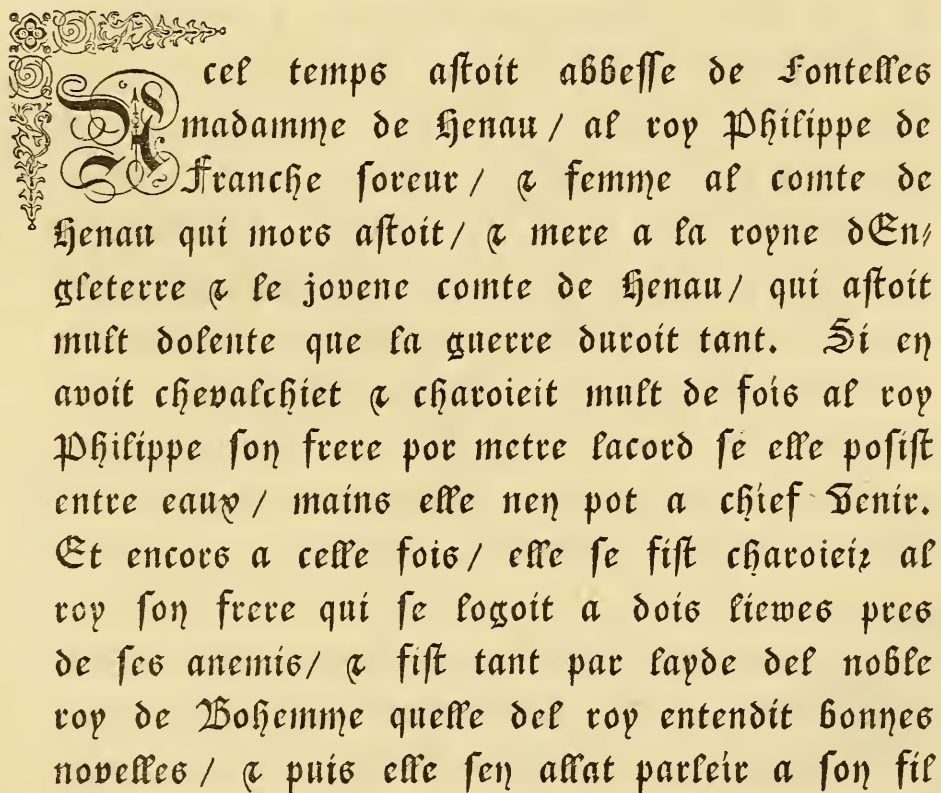 A cel temps astoit abbesse de Fontelles
madamme de Henau / al roy Philippe de
Franche soreur / & femme al comte de
Henau qui mors astoit / & mere a la royne dEn⸗
gleterre & le jovene comte de Henau / qui astoit
mult dolente que la guerre duroit tant. Si en
avoit chevalchiet & charoieit mult de fois al roy
Philippe son frere por metre lacord se elle posist
entre eaux / mains elle nen pot a chief Venir.
Et encors a celle fois / elle se fist charoieir al
roy son frere qui se logoit a dois liewes pres
de ses anemis / & fist tant par layde del noble
roy de Bohemme quelle del roy entendit bonnes
novelles / & puis elle sen allat parleir a son fil